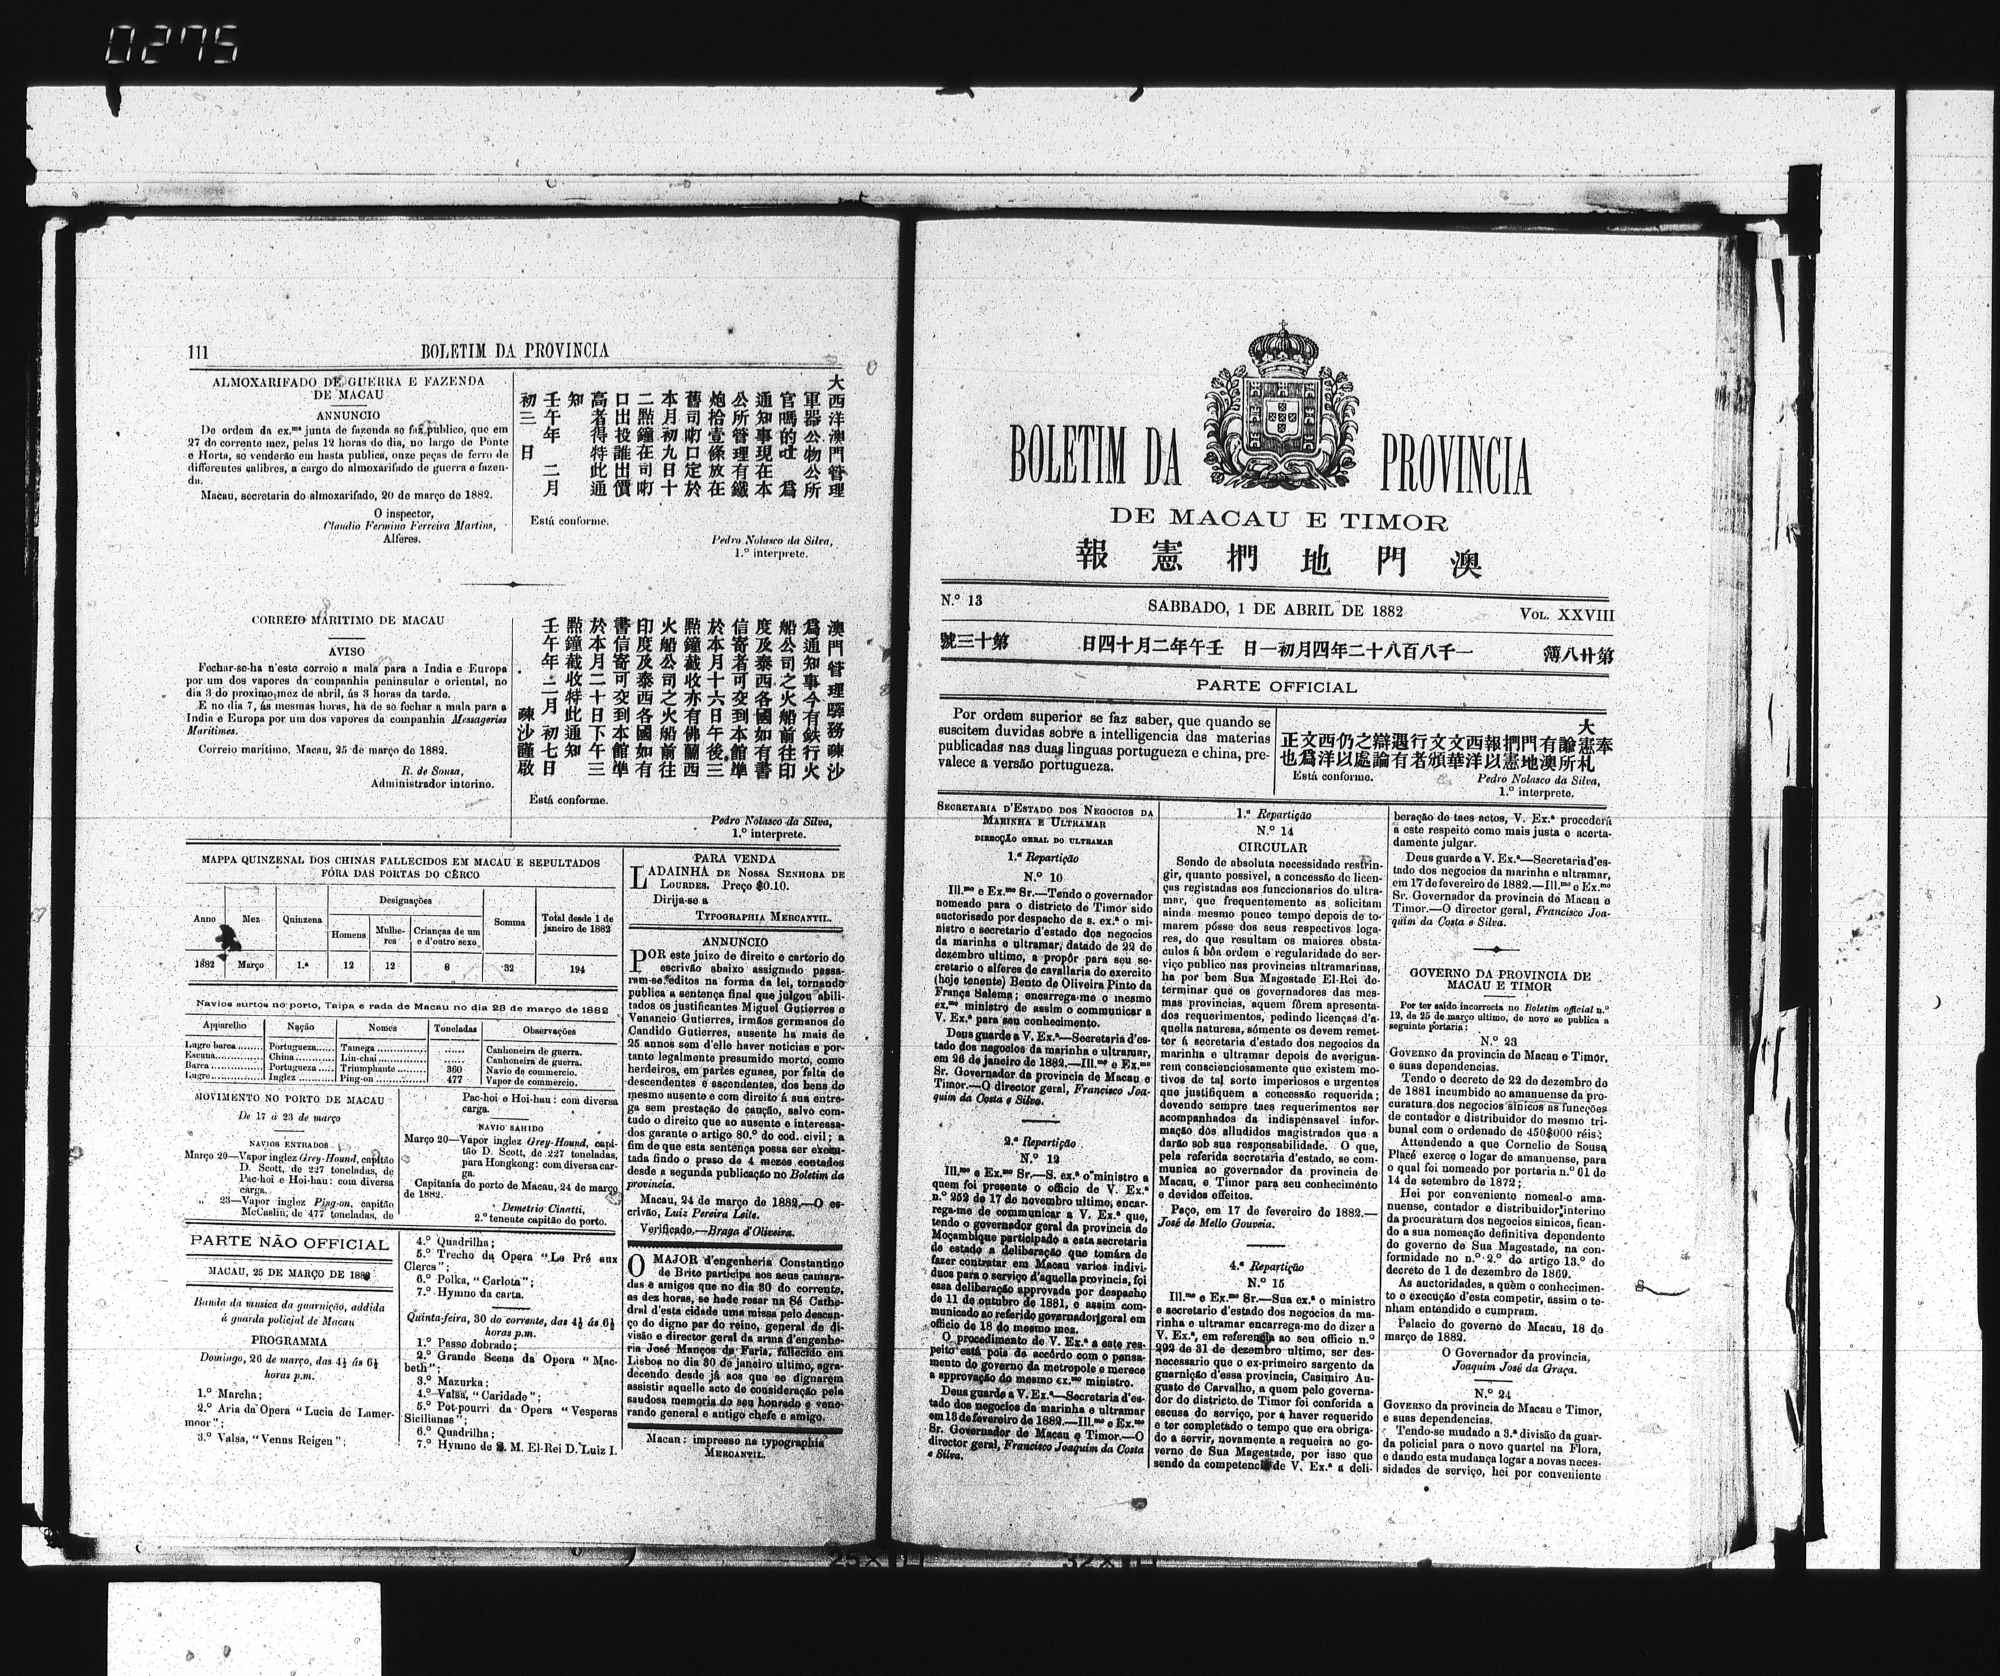 0275
111
BOLETIM DA PROVINCIA
ALMOXARIFADO DE GUERRA E FAZENDA
DE MACAU
ANNUNCIO
De ordem da ex.ma junta de fazenda se faz publico, que em
27 do corrente mez, pelas 12 horas do dia, no largo de Ponte
e Horta, se venderão em hasta publica, onze peças de ferro de
differentes calibres, a cargo do almoxarifado de guerra e fazen-
da.
Macau, secretaria do almoxarifado, 20 de março de 1882.
O inspector,
Claudio Fermino Ferreira Martins,
Alferes.
大西洋澳門管理
軍器公物公所
官嗎的吐 爲
通知事現在本
公所管理有鐵
炮拾壹條放在
舊司咑口定於
本月初九日十
二點鐘在司咑
口出投誰出價
高者得特此通
知
壬午年 二月
初三 日
Está conforme.
Pedro Nolasco da Silva,
1.º interprete.
CORREIO MARITIMO DE MACAU
AVISO
Fechar-se-ha n'este correio a mala para a India e Europa
por um dos vapores da companhia peninsular e oriental, no
dia 3 do proximo mez de abril, ás 3 horas da tarde.
E no dia 7, ás mesmas horas, ha de se fechar a mala para a
India e Europa por um dos vapores da companhia Messageries
Maritimes.
Correio maritimo, Macau, 25 de março de 1882.
R. de Sousa,
Administrador interino.
澳門管理驛務疎沙
爲通知事今有鉄行火
船公司之火船前往印
度及泰西各國如有書
信寄者可交到本館準
於本月十六日午後三
點鐘截收亦有佛蘭西
火船公司之火船前往
印度及泰西各國如有
書信寄可交到本館準
於本月二十日下午三
點鐘截收特此通知
壬午年二月 初七日
疎沙謹啟
Está conforme.
Pedro Nolasco da Silva,
1.º interprete.
MAPPA QUINZENAL DOS CHINAS FALLECIDOS EM MACAU E SEPULTADOS
FÓRA DAS PORTAS DO CÊRCO
Anno Mez Quinzena Designações Somma Total desde 1 de
janeiro de 1882
Homens Mulhe-
res Crianças de um
e d'outro sexo
1882 Março 1.ª 12 12 8 32 194
Navios surtos no porto, Taipa e rada de Macau no dia 23 de março de 1882
Apparelho Nação Nomes Toneladas Observações
Lugre barca Portugueza Tamega ...... Canhoneira de guerra.
Escuna China Lin-chai ...... Canhoneira de guerra.
Barca Portugueza Triumphante 360 Navio de commercio.
Lugre Inglez Ping-on 477 Vapor de commercio.
MOVIMENTO NO PORTO DE MACAU
De 17 a 23 de março
NAVIOS ENTRADOS
Março 20—Vapor inglez Grey-Hound, capitão
D. Scott, de 227 toneladas, de
Pac-hoi e Hoi-hau: com diversa
carga.
„ 23—Vapor inglez Ping-on, capitão
McCaslin, de 477 toneladas, de
Pac-hoi e Hoi-hau: com diversa
carga.
NAVIO SAHIDO
Março 20—Vapor inglez Grey-Hound, capi-
tão D. Scott, de 227 toneladas,
para Hongkong: com diversa car-
ga.
Capitania do porto de Macau, 24 de março
de 1882.
Demetrio Cinatti,
2.º tenente capitão do porto.
PARTE NÃO OFFICIAL
MACAU, 25 DE MARÇO DE 1882
Banda da musica da guarnição, addida
á guarda policial de Macau
PROGRAMMA
Domingo, 26 de março, das 4½ ás 6½
horas p.m.
1.º Marcha;
2.º Aria da Opera "Lucia de Lamer-
moor";
3.º Valsa, "Venus Reigen";
4.º Quadrilha;
5.º Trecho da Opera "Le Pré aux
Clercs";
6.º Polka, "Carlota";
7.º Hymno da carta.
Quinta-feira, 30 do corrente, das 4½ ás 6½
horas p.m.
1.º Passo dobrado;
2.º Grande Scena da Opera "Mac-
beth";
3.º Mazurka;
4.º Valsa, "Caridade";
5.º Pot-pourri da Opera "Vesperas
Sicilianas";
6.º Quadrilha;
7.º Hymno de S. M. El-Rei D. Luiz I.
PARA VENDA
LADAINHA DE NOSSA SENHORA DE
LOURDES. Preço $0.10.
Dirija-se a
TYPOGRAPHIA MERCANTIL.
ANNUNCIO
POR este juizo de direito e cartorio do
escrivão abaixo assignado passa-
ram-se editos na forma da lei, tornando
publica a sentença final que julgou abili-
tados os justificantes Miguel Gutierres e
Venancio Gutierres, irmãos germanos de
Candido Gutierres, ausente ha mais de
25 annos sem d'elle haver noticias e por-
tanto legalmente presumido morto, como
herdeiros, em partes eguaes, por falta de
descendentes e ascendentes, dos bens do
mesmo ausente e com direito á sua entre-
ga sem prestação de caução, salvo com-
tudo o direito que ao ausente e interessa-
dos garante o artigo 80.º do cod. civil; a
fim de que esta sentença possa ser execu-
tada findo o praso de 4 mezes contados
desde a segunda publicação no Boletim da
provincia.
Macau, 24 de março de 1882.—O es-
crivão, Luiz Pereira Leite.
Verificado.—Braga d'Oliveira.
O MAJOR d'engenheria Constantino
de Brito participa aos seus camara-
das e amigos que no dia 30 do corrente,
as dez horas, se hade rosar na Sé Cathe-
dral d'esta cidade uma missa pelo descan-
ço do digno par do reino, general de di-
visão e director geral da arma d'engenhe-
ria José Manços de Faria, fallecido em
Lisboa no dia 30 de janeiro ultimo, agra-
decendo desde já aos que se dignarem
assistir aquelle acto de consideração pela
saudosa memoria do seu honrado e vene-
rando general e antigo chefe e amigo.
Macau: impresso na typographia
MERCANTIL.
BOLETIM DA PROVINCIA
DE MACAU E TIMOR
報 憲 捫 地 門 澳
N.º 13
SABBADO, 1 DE ABRIL DE 1882
VOL. XXVIII
號三十第
日四十月二年午壬 日一初月四年二十八百八千一
簿八廿第
PARTE OFFICIAL
Por ordem superior se faz saber, que quando se
suscitem duvidas sobre a intelligencia das materias
publicadas nas duas linguas portugueza e china, pre-
valece a versão portugueza.
大
正文西仍之辯遇行文文西報捫門有諭憲奉
也爲洋以處論有者頒華洋以憲地澳所札
Está conforme.
Pedro Nolasco da Silva,
1.º interprete.
SECRETARIA D'ESTADO DOS NEGOCIOS DA
MARINHA E ULTRAMAR
DIRECÇÃO GERAL DO ULTRAMAR
1.ª Repartição
N.º 10
Ill.mo e Ex.mo Sr.—Tendo o governador
nomeado para o districto de Timor sido
auctorisado por despacho de s. ex.ª o mi-
nistro e secretario d'estado dos negocios
da marinha e ultramar, datado de 22 de
dezembro ultimo, a propôr para seu se-
cretario o alferes de cavallaria do exercito
(hoje tenente) Bento de Oliveira Pinto da
França Salema; encarrega-me o mesmo
ex.mo ministro de assim o communicar a
V. Ex.ª para seu conhecimento.
Deus guarde a V. Ex.ª—Secretaria d'es-
tado dos negocios da marinha e ultramar,
em 26 de janeiro de 1882.—Ill.mo e Ex.mo
Sr. Governador da provincia de Macau e
Timor.—O director geral, Francisco Joa-
quim da Costa e Silva.
2.ª Repartição
N.º 12
Ill.mo e Ex.mo Sr.—S. ex.ª o ministro a
quem foi presente o officio de V. Ex.ª
n.º 252 de 17 de novembro ultimo, encar-
rega-me de communicar a V. Ex.ª que,
tendo o governador geral da provincia de
Moçambique participado a esta secretaria
de estado a deliberação que tomára de
fazer contratar em Macau varios indivi-
duos para o serviço d'aquella provincia, foi
essa deliberação approvada por despacho
de 11 de outubro de 1881, e assim com-
municado ao referido governador geral em
officio de 18 do mesmo mez.
O procedimento de V. Ex.ª a este res-
peito está pois de accôrdo com o pensa-
mento do governo da metropole e merece
a approvação do mesmo ex.mo ministro.
Deus guarde a V. Ex.ª—Secretaria d'es-
tado dos negocios da marinha e ultramar
em 13 de fevereiro de 1882.—Ill.mo e Ex.mo
Sr. Governador de Macau e Timor.—O
director geral, Francisco Joaquim da Costa
e Silva.
1.ª Repartição
N.º 14
CIRCULAR
Sendo de absoluta necessidade restrin-
gir, quanto possivel, a concessão de licen-
ças registadas aos funccionarios do ultra-
mar, que frequentemente as solicitam
ainda mesmo pouco tempo depois de to-
marem pósse dos seus respectivos loga-
res, do que resultam os maiores obsta-
culos á bôa ordem e regularidade do ser-
viço publico nas provincias ultramarinas,
ha por bem Sua Magestade El-Rei de-
terminar que os governadores das mes-
mas provincias, aquem fôrem apresenta-
dos requerimentos, pedindo licenças d'a-
quella naturesa, sómente os devem remet-
ter á secretaria d'estado dos negocios da
marinha e ultramar depois de averigua-
rem conscienciosamente que existem mo-
tivos de tal sorte imperiosos e urgentes
que justifiquem a concessão requerida;
devendo sempre taes requerimentos ser
acompanhados da indispensavel infor-
mação dos alludidos magistrados que a
darão sob sua responsabilidade. O que,
pela referida secretaria d'estado, se com-
munica ao governador da provincia de
Macau, e Timor para seu conhecimento
e devidos effeitos.
Paço, em 17 de fevereiro de 1882.—
José de Mello Gouveia.
4.ª Repartição
N.º 15
Ill.mo e Ex.mo Sr.—Sua ex.ª o ministro
e secretario d'estado dos negocios da ma-
rinha e ultramar encarrega-me de dizer a
V. Ex.ª, em referencia ao seu officio n.º
292 de 31 de dezembro ultimo, ser des-
necessario que o ex-primeiro sargento da
guarnição d'essa provincia, Casimiro Au-
gusto de Carvalho, a quem pelo governa-
dor do districto de Timor foi conferida a
escusa do serviço, por a haver requerido
e ter completado o tempo que era obriga-
do a servir, novamente a requeira ao go-
verno de Sua Magestade, por isso que
sendo da competencia de V. Ex.ª a deli-
beração de taes actos, V. Ex.ª procederá
a este respeito como mais justa e acerta-
damente julgar.
Deus guarde a V. Ex.ª—Secretaria d'es-
tado dos negocios da marinha e ultramar,
em 17 de fevereiro de 1882.—Ill.mo e Ex.mo
Sr. Governador da provincia de Macau e
Timor.—O director geral, Francisco Joa-
quim da Costa e Silva.
GOVERNO DA PROVINCIA DE
MACAU E TIMOR
Por ter saido incorrecta no Boletim official n.º
12, de 25 de março ultimo, de novo se publica a
seguinte portaria:
N.º 23
GOVERNO da provincia de Macau e Timor,
e suas dependencias.
Tendo o decreto de 22 de dezembro de
de 1881 incumbido ao amanuense da pro-
curatura dos negocios sinicos as funcções
de contador e distribuidor do mesmo tri-
bunal com o ordenado de 450$000 réis;
Attendendo a que Cornelio de Sousa
Placé exerce o logar de amanuense, para
o qual foi nomeado por portaria n.º 61 de
14 de setembro de 1872;
Hei por conveniente nomeal-o ama-
nuense, contador e distribuidor interino
da procuratura dos negocios sinicos, fican-
do a sua nomeação definitiva dependente
do governo de Sua Magestade, na con-
formidade no n.º 2.º do artigo 13.º do
decreto de 1 de dezembro de 1869.
As auctoridades, a quem o conhecimen-
to e execução d'esta competir, assim o te-
nham entendido e cumpram.
Palacio do governo de Macau, 18 de
março de 1882.
O Governador da provincia,
Joaquim José da Graça.
N.º 24
GOVERNO da provincia de Macau e Timor,
e suas dependencias.
Tendo-se mudado a 3.ª divisão da guar-
da policial para o novo quartel na Flora,
e dando esta mudança logar a novas neces-
sidades de serviço, hei por conveniente